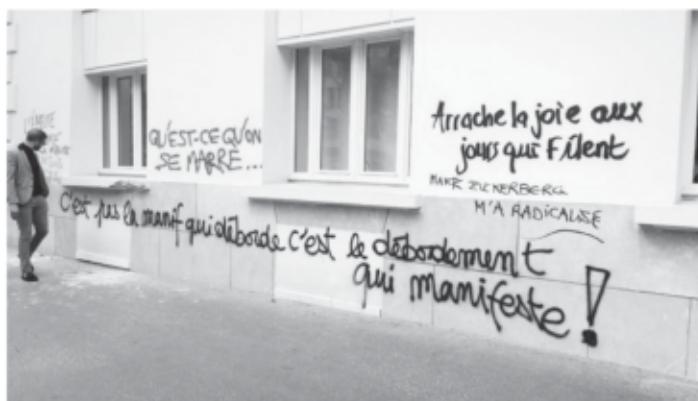 QU'EST-CE QU'ON
SE MARRE...
Arrache la joie aux
jours qui Filent
MARK ZUKERBERG
M'A RADICALISÉ
C'est pas la manif qui déborde c'est le débordement
qui manifeste !